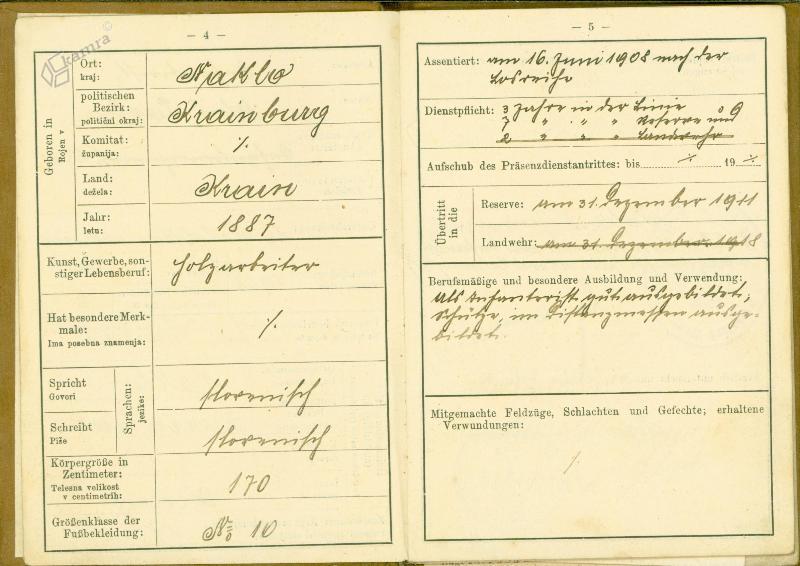 kamra ©
— 4 —
Geboren in
Rojen v
Ort:
kraj:
Naklo
politischen
Bezirk:
politični okraj:
Krainburg
Komitat:
županija:
./.
Land:
dežela:
Krain
Jahr:
letu:
1887
Kunst, Gewerbe, son-
stiger Lebensberuf:
Holzarbeiter
Hat besondere Merk-
male:
Ima posebna znamenja:
./.
Sprachen:
jezike:
Spricht
Govori
slovenisch
Schreibt
Piše
slovenisch
Körpergröße in
Zentimeter:
Telesna velikost
v centimetrih:
170
Größenklasse der
Fußbekleidung:
No 10
— 5 —
Assentiert: am 16. Juni 1908 nach der
Losreihe
Dienstpflicht: 3 Jahre in der Linie
7 " " " Reserve und
2 " " " Landwehr
Aufschub des Präsenzdienstantrittes: bis ./. 19 ./.
Übertritt
in die
Reserve: am 31. Dezember 1911
Landwehr: am 31. Dezember 1918
Berufsmäßige und besondere Ausbildung und Verwendung:
Als Infanterist gut ausgebildet,
Schütze, im Distanzmessen ausge-
bildet.
Mitgemachte Feldzüge, Schlachten und Gefechte; erhaltene
Verwundungen:
./.